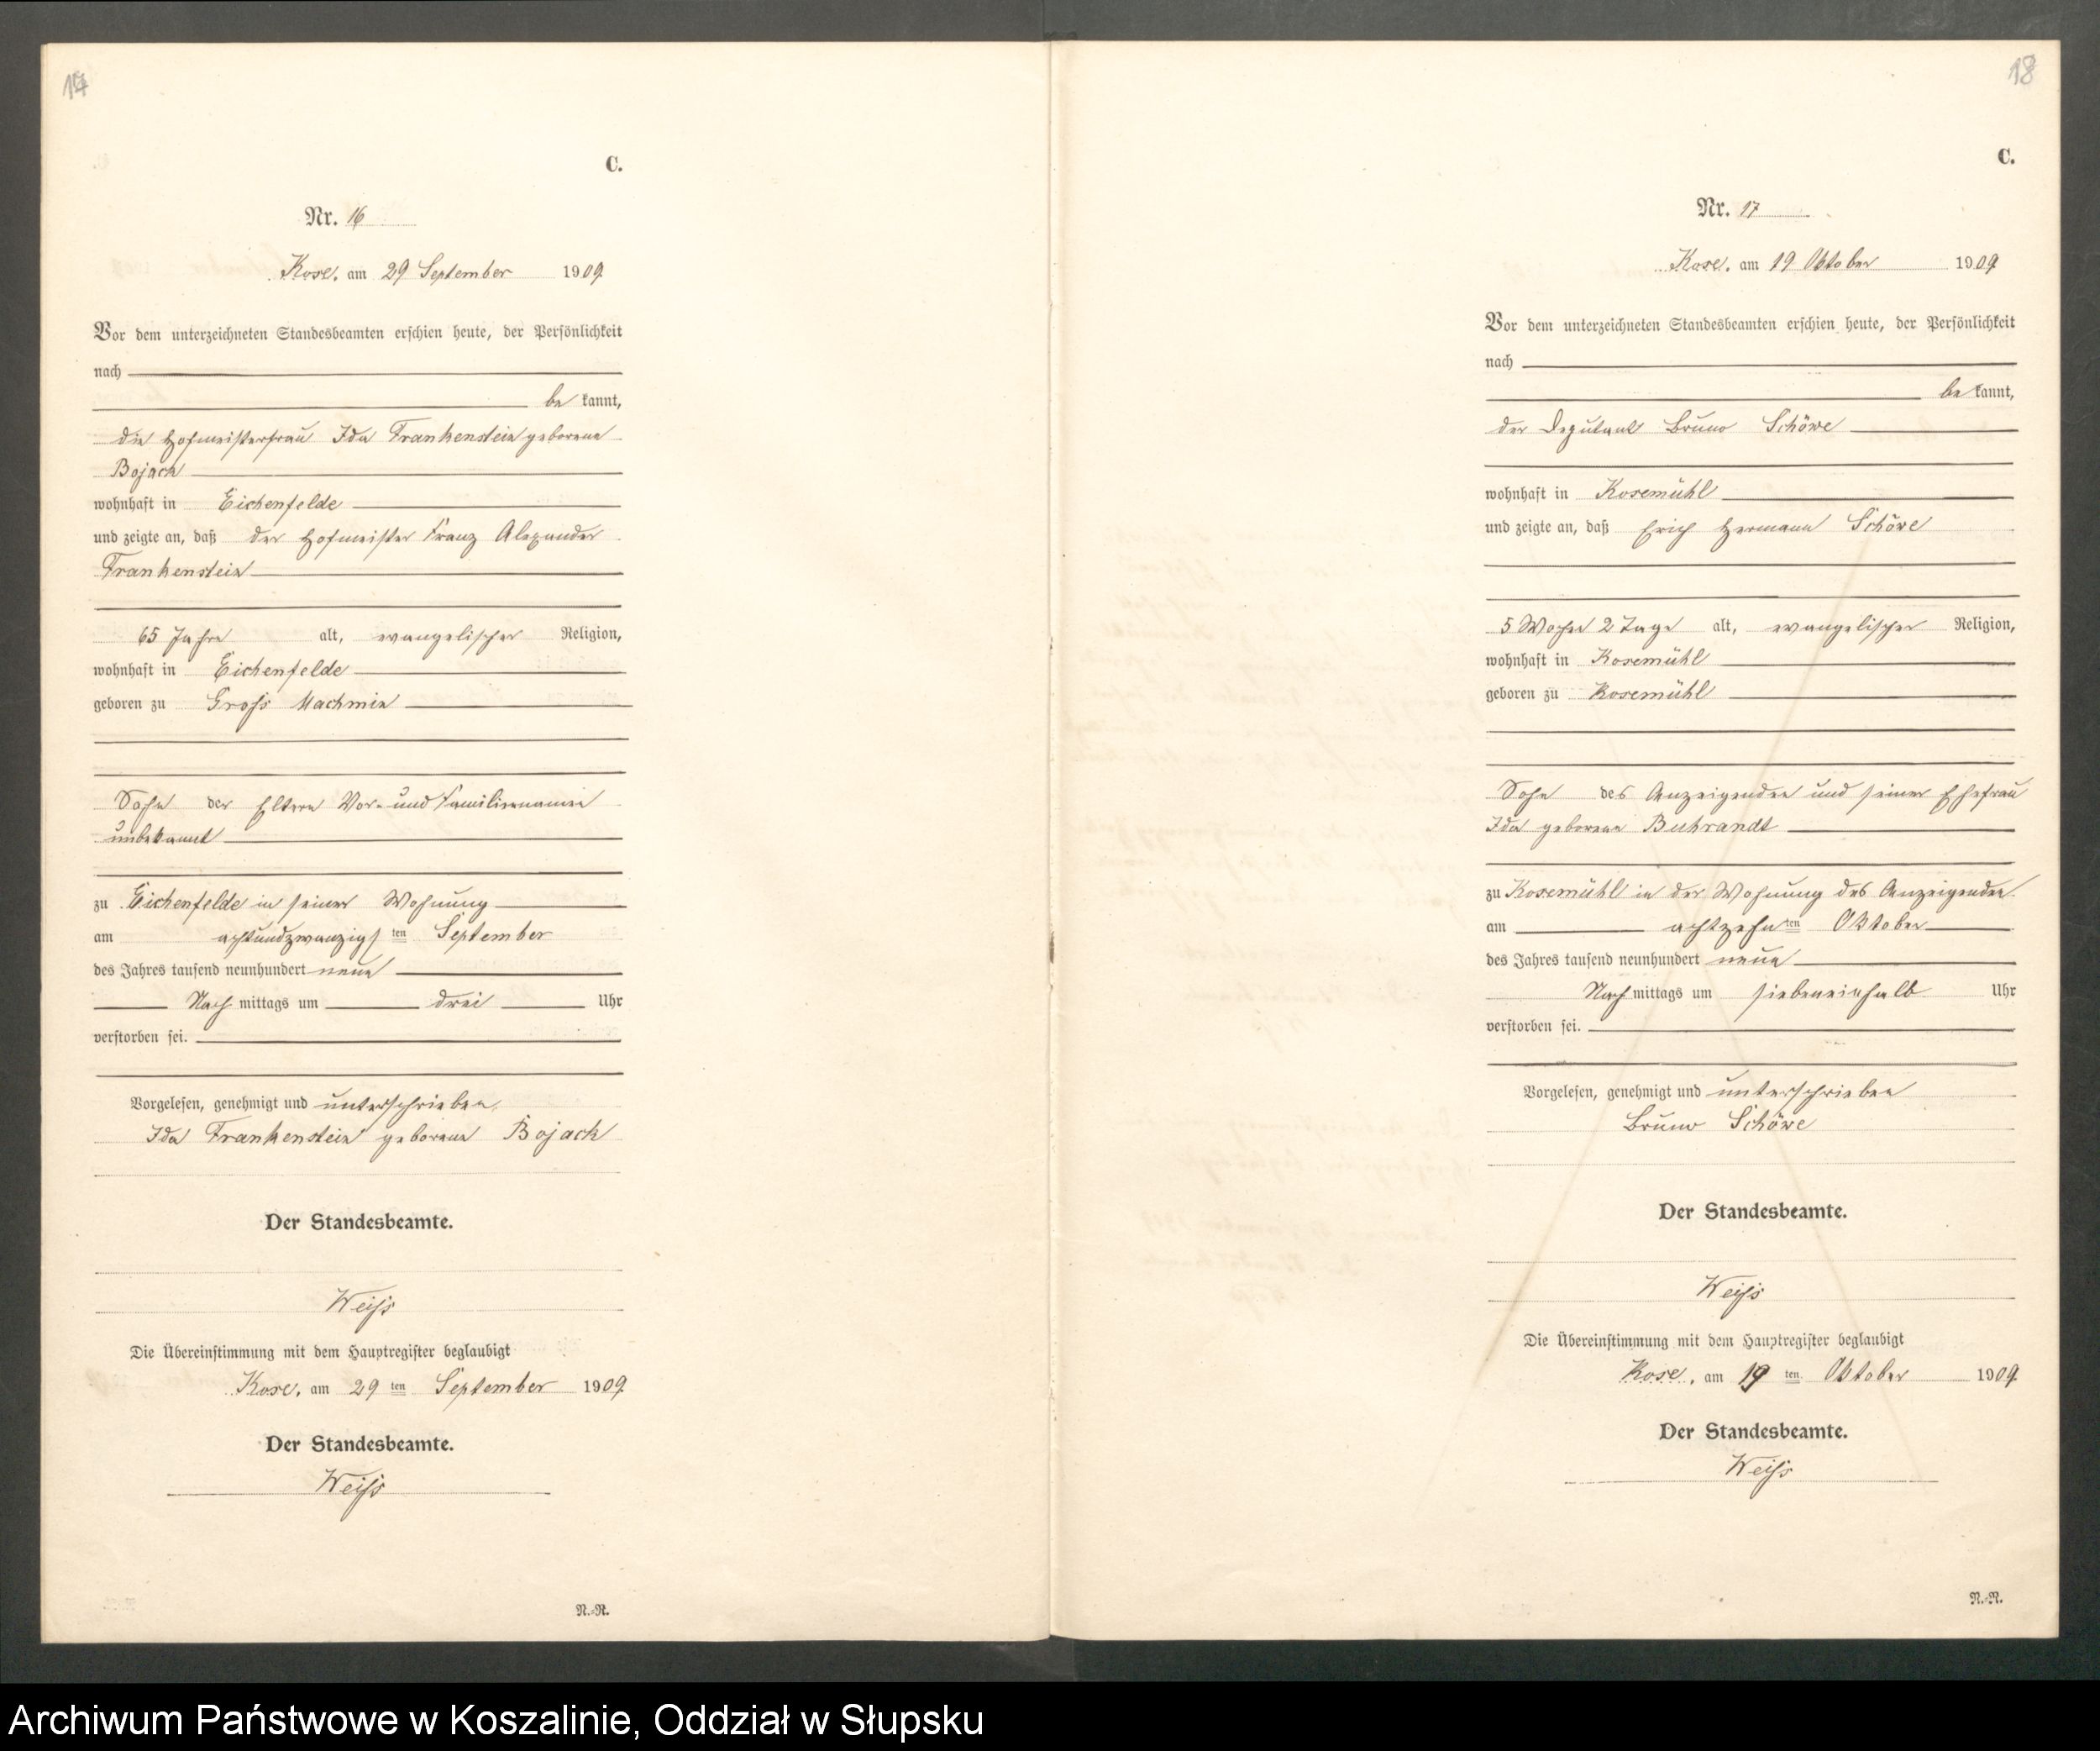 17
C.
Nr. 16
Kose, am 29 September 1909
Vor dem unterzeichneten Standesbeamten erschien heute, der Persönlichkeit
nach
be kannt,
die Hofmeisterfrau Ida Frankenstein geborene
Bojack
wohnhaft in Eichenfelde
und zeigte an, daß der Hofmeister Franz Alexander
Frankenstein
65 Jahre alt, evangelischer Religion,
wohnhaft in Eichenfelde
geboren zu Gross Machmin
Sohn der Eltern Vor- und Familiennamen
unbekannt
zu Eichenfelde in seiner Wohnung
am achtundzwanzigs ten September
des Jahres tausend neunhundert neun
Nach mittags um drei Uhr
verstorben sei.
Vorgelesen, genehmigt und unterschrieben
Ida Frankenstein geborene Bojack
Der Standesbeamte.
Weiss
Die Übereinstimmung mit dem Hauptregister beglaubigt
Kose, am 29 ten September 1909
Der Standesbeamte.
Weiss
N.-R.
18
C.
Nr. 17
Kose, am 19 Oktober 1909
Vor dem unterzeichneten Standesbeamten erschien heute, der Persönlichkeit
nach
be kannt,
der Deputant Bruno Schöwe
wohnhaft in Kosemühl
und zeigte an, daß Erich Hermann Schöwe
5 Wochen 2 Tage alt, evangelischer Religion,
wohnhaft in Kosemühl
geboren zu Kosemühl
Sohn des Anzeigenden und seiner Ehefrau
Ida geborene Buhrandt
zu Kosemühl in der Wohnung des Anzeigenden
am achtzehn ten Oktober
des Jahres tausend neunhundert neun
Nach mittags um siebeneinhalb Uhr
verstorben sei.
Vorgelesen, genehmigt und unterschrieben
Bruno Schöwe
Der Standesbeamte.
Weiss
Die Übereinstimmung mit dem Hauptregister beglaubigt
Kose, am 19 ten Oktober 1909
Der Standesbeamte.
Weiss
N.-R.
Archiwum Państwowe w Koszalinie, Oddział w Słupsku